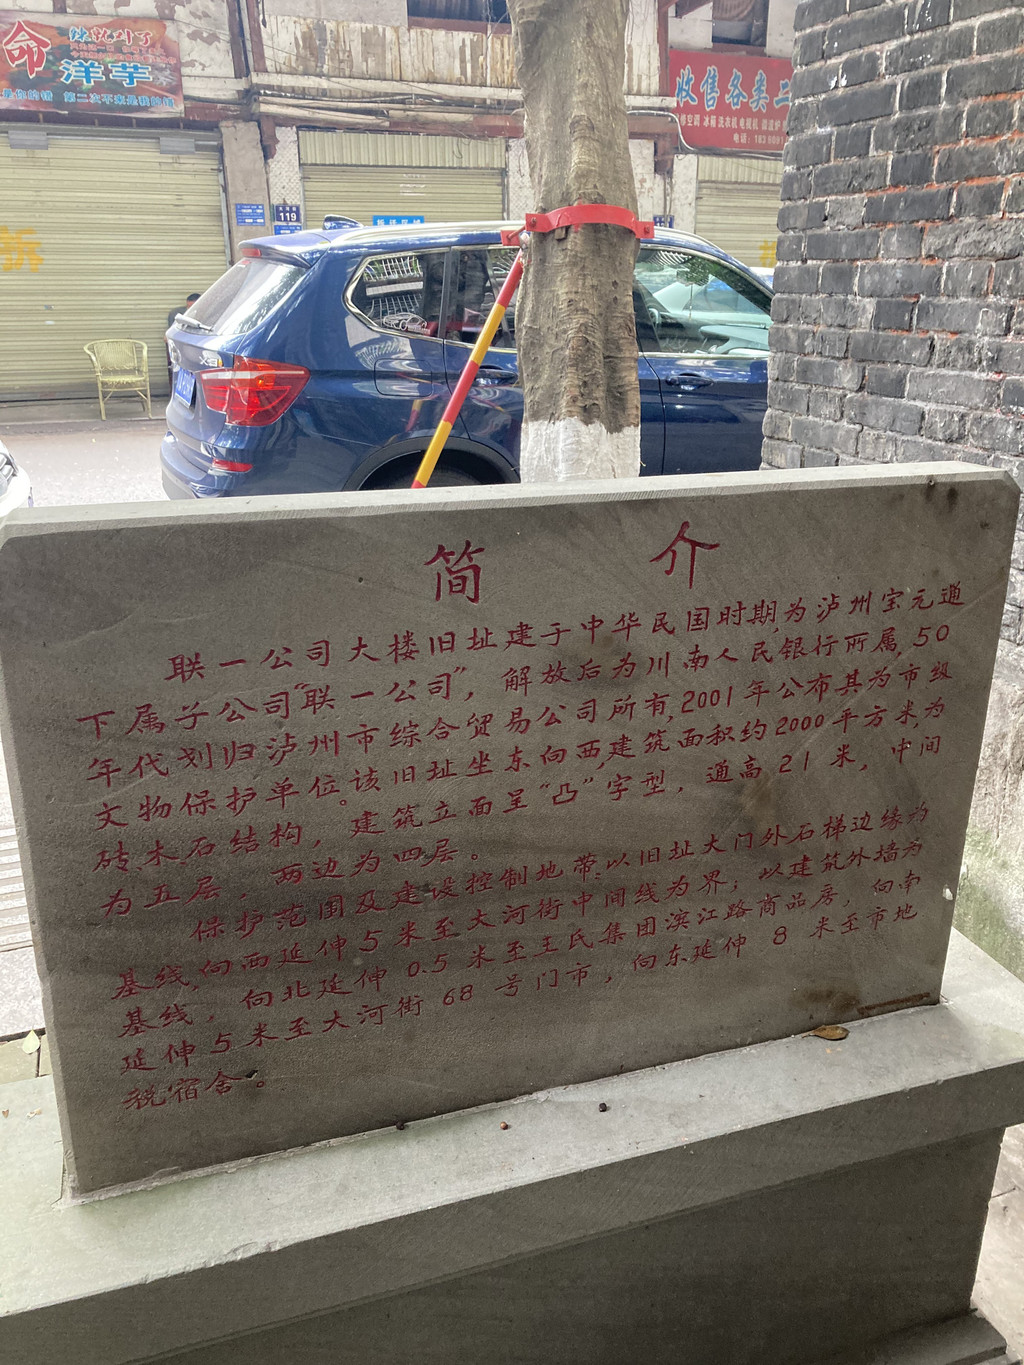 命
辣就对了
洋芋
是你的错 第二次不来是我的错
收售各类二
修空调 冰箱 洗衣机 电视机
电话:
119
拆
简 介
联一公司大楼旧址建于中华民国时期,为泸州宝元通
下属子公司“联一公司”,解放后为川南人民银行所属,50
年代划归泸州市综合贸易公司所有,2001年公布其为市级
文物保护单位。该旧址坐东向西,建筑面积约2000平方米,为
砖、木石结构,建筑立面呈“凸”字型,通高21米,中间
为五层,两边为四层。
保护范围及建设控制地带:以旧址大门外石梯边缘为
基线,向西延伸5米至大河街中间线为界;以建筑外墙为
基线,向北延伸0.5米至王氏集团滨江路商品房,向南
延伸5米至大河街68号门市,向东延伸8米至市地
税宿舍。